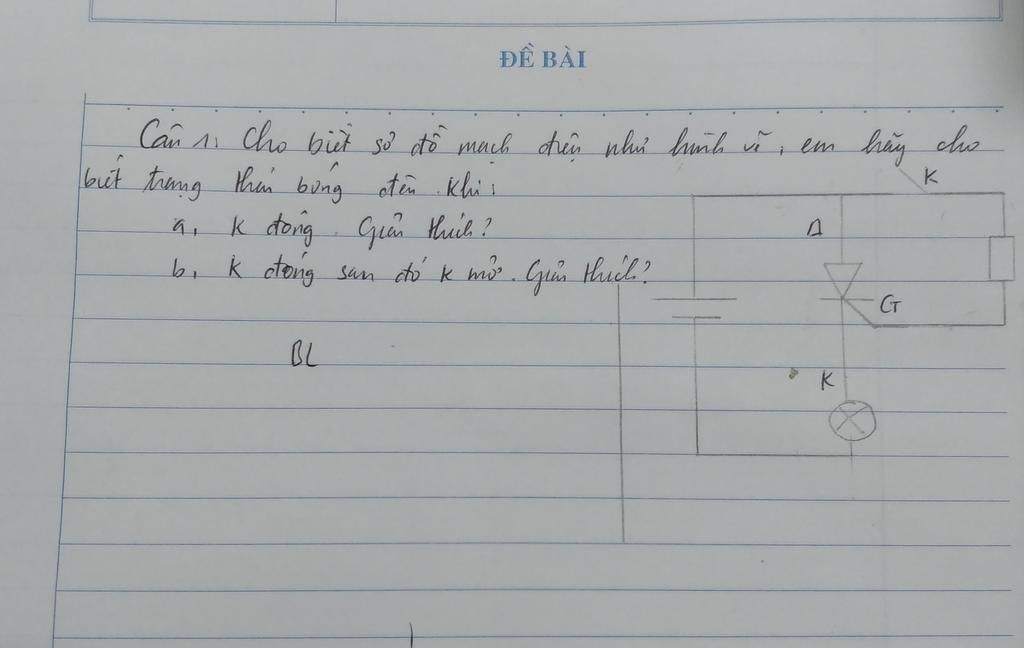 ĐỀ BÀI
Câu 1. Cho biết sơ đồ mạch điện như hình vẽ, em hãy cho
biết trạng thái bóng đèn khi:
a, K đóng. Giải thích?
b, K đóng sau đó K mở. Giải thích?
K
A
G
K
BL